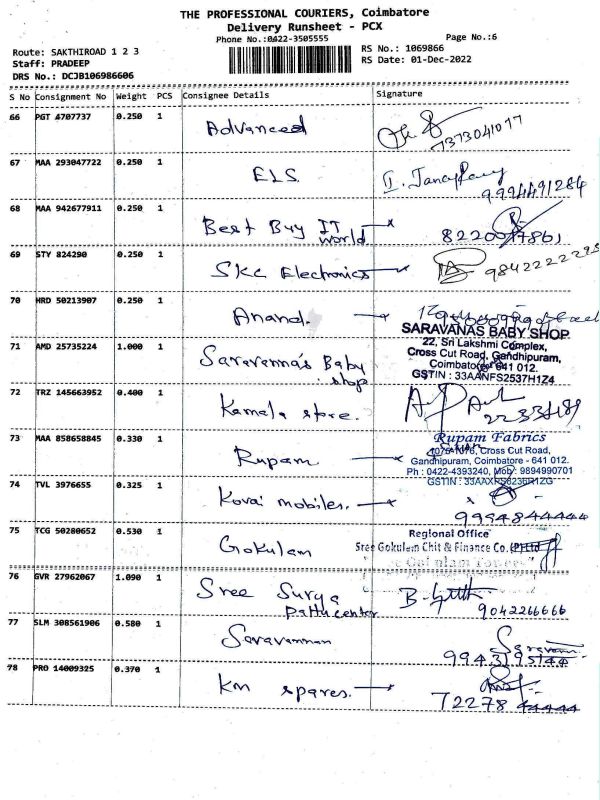 THE PROFESSIONAL COURIERS, Coimbatore
Delivery Runsheet - PCX
Phone No.:0422-3505555
Page No.:6
Route: SAKTHIROAD 1 2 3
RS No.: 1069866
Staff: PRADEEP
RS Date: 01-Dec-2022
DRS No.: DCJB106986606
S No Consignment No Weight PCS Consignee Details Signature
66 PGT 4707737 0.250 1 Advanced 7373041077
67 MAA 293047722 0.250 1 ELS 9994491284
68 MAA 942677911 0.250 1 Best Buy IT world 8220017861
69 STY 824290 0.250 1 SKC Electronics 9842222295
70 HRD 50213907 0.250 1 Anand.
SARAVANAS BABY SHOP
22, Sri Lakshmi Complex,
Cross Cut Road, Gandhipuram,
Coimbatore 641 012.
GSTIN : 33AANFS2537H1Z4
71 AMD 25735224 1.000 1 Saravanna's Baby shop
72 TRZ 145663952 0.400 1 Kamala store.
73 MAA 858658845 0.330 1 Rupam
Rupam Fabrics
Cross Cut Road,
Gandhipuram, Coimbatore - 641 012.
Ph : 0422-4393240, Mob: 9894990701
74 TVL 3976655 0.325 1 Kovai mobiles. 9994844444
75 TCG 50280652 0.530 1 Gokulam
Regional Office
Sree Gokulam Chit & Finance Co. (P) Ltd
76 GVR 27962067 1.090 1 Sree Surya Pattu center 9042266666
77 SLM 308561906 0.580 1 Saravannan Saravanan
78 PRO 14009325 0.370 1 Km spares. 72278 44444